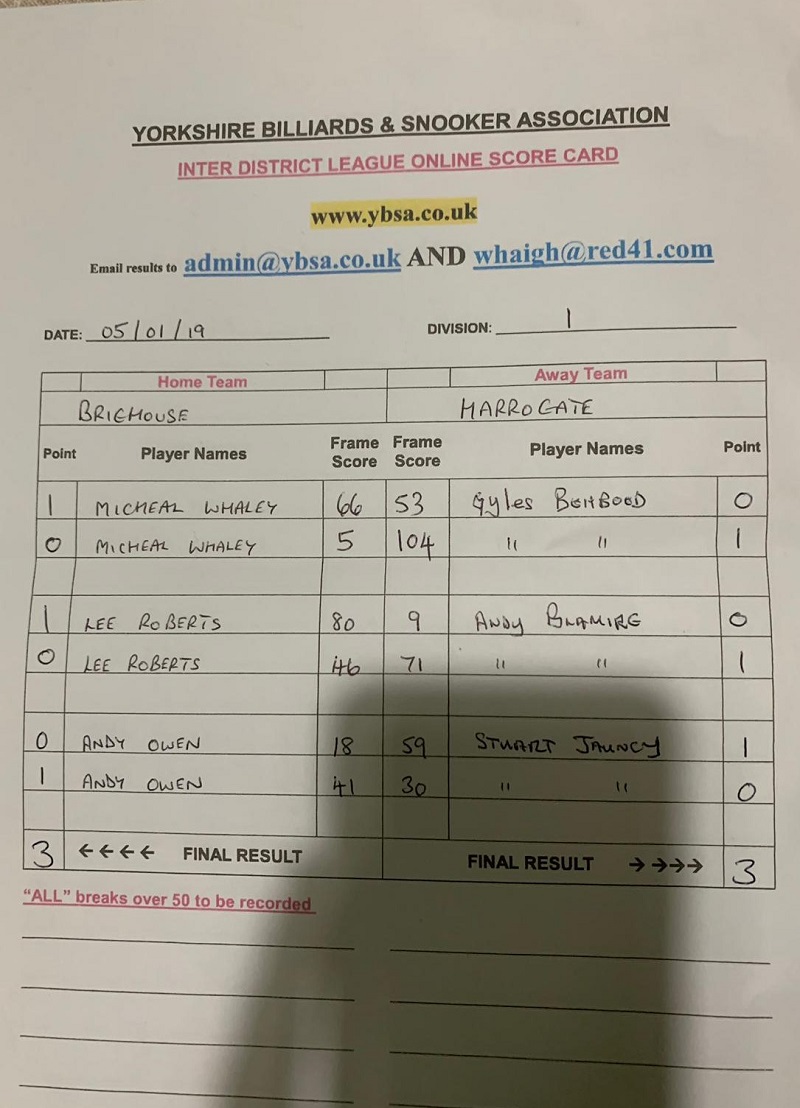 YORKSHIRE BILLIARDS & SNOOKER ASSOCIATION
INTER DISTRICT LEAGUE ONLINE SCORE CARD
www.ybsa.co.uk
Email results to admin@ybsa.co.uk AND whaigh@red41.com
DATE: 05/01/19 DIVISION: 1
Home Team Away Team
BRIGHOUSE HARROGATE
Point Player Names Frame Score Frame Score Player Names Point
1 MICHEAL WHALEY 66 53 Gyles BEHBOOD 0
0 MICHEAL WHALEY 5 104 " " 1
1 LEE ROBERTS 80 9 ANDY BLAMIRE 0
0 LEE ROBERTS 46 71 " " 1
0 ANDY OWEN 18 59 STUART JAUNCY 1
1 ANDY OWEN 41 30 " " 0
3 ←←←← FINAL RESULT FINAL RESULT →→→→ 3
“ALL” breaks over 50 to be recorded